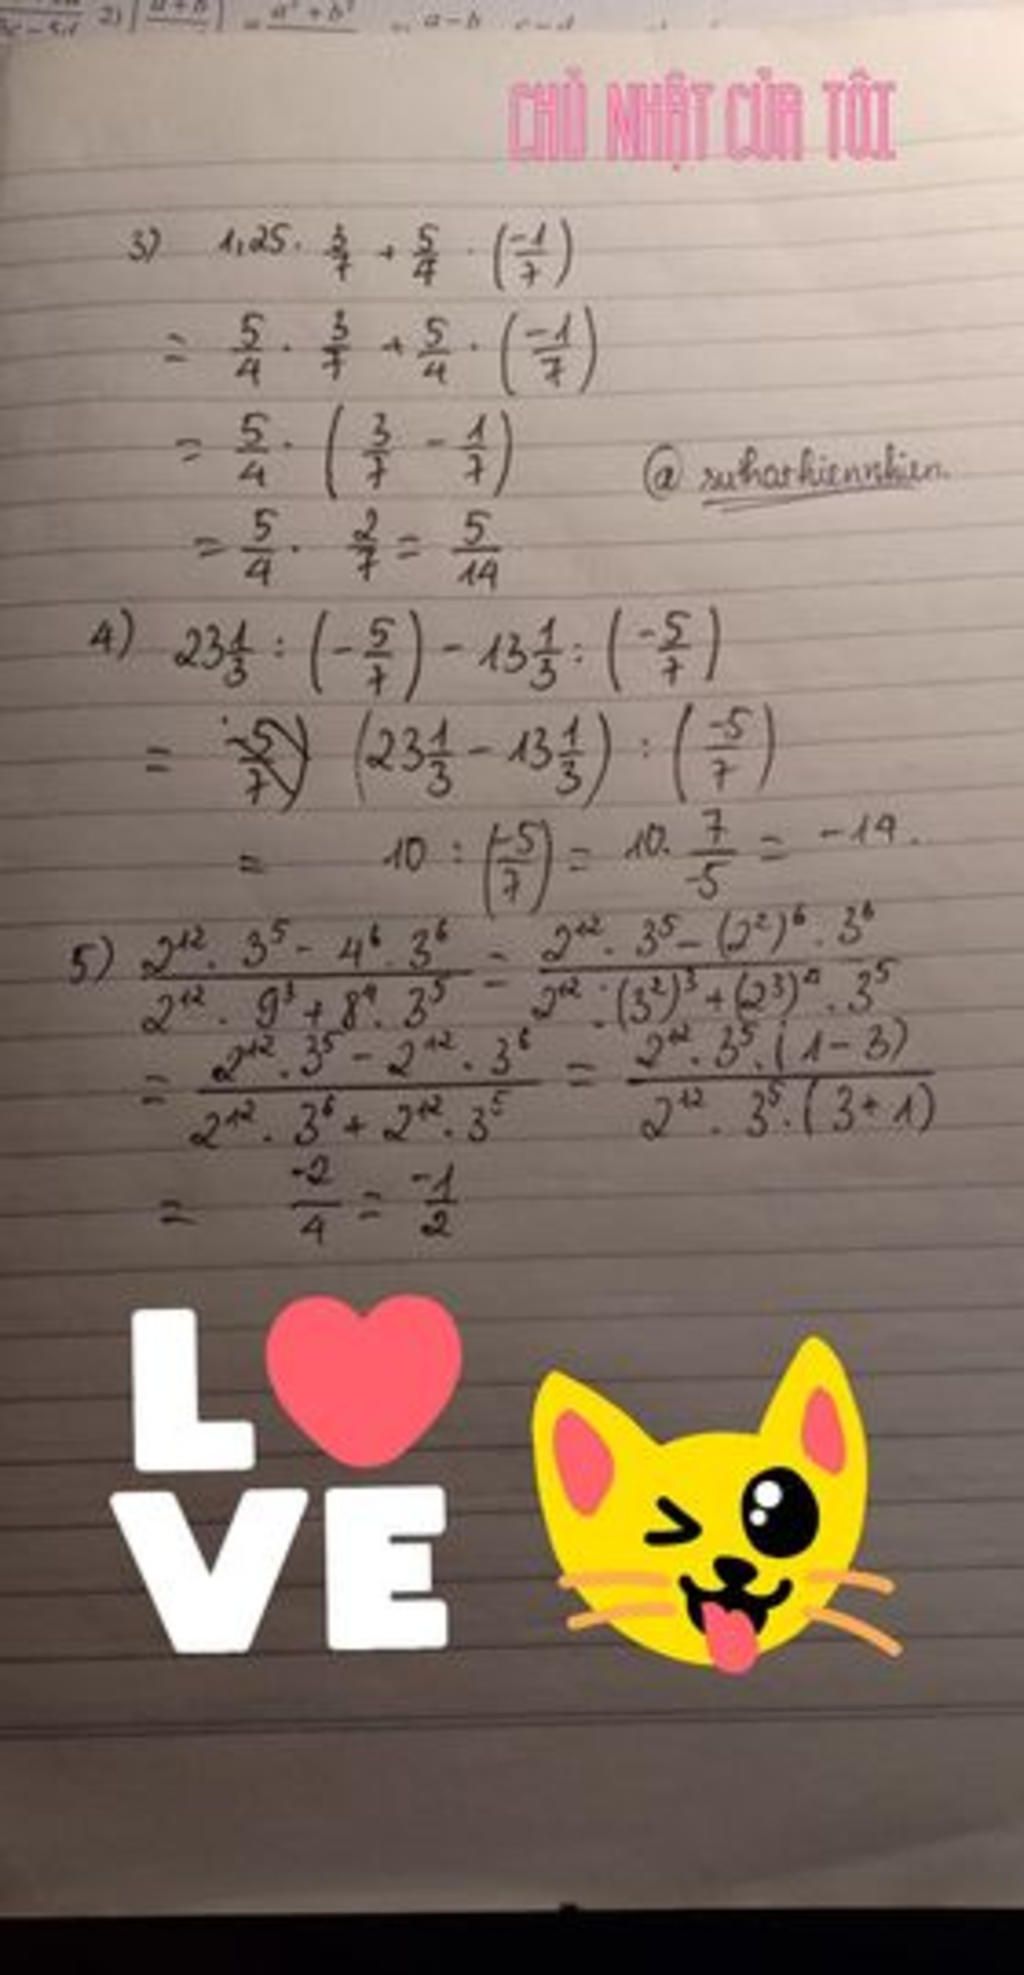 CHỦ NHẬT CỦA TÔI
3) 1,25 . 3/7 + 5/4 . (-1/7)
= 5/4 . 3/7 + 5/4 . (-1/7)
= 5/4 . (3/7 - 1/7)
@ suharhiennhien
= 5/4 . 2/7 = 5/14
4) 23 1/3 : (-5/7) - 13 1/3 : (-5/7)
= (23 1/3 - 13 1/3) : (-5/7)
= 10 : (-5/7) = 10 . 7/-5 = -14.
5) (2¹² . 3⁵ - 4⁶ . 3⁶)/(2¹² . 9³ + 8⁴ . 3⁵) = (2¹² . 3⁵ - (2²)⁶ . 3⁶)/(2¹² . (3²)³ + (2³)⁴ . 3⁵)
= (2¹² . 3⁵ - 2¹² . 3⁶)/(2¹² . 3⁶ + 2¹² . 3⁵) = (2¹² . 3⁵ . (1 - 3))/(2¹² . 3⁵ . (3 + 1))
= -2/4 = -1/2
L❤
VE